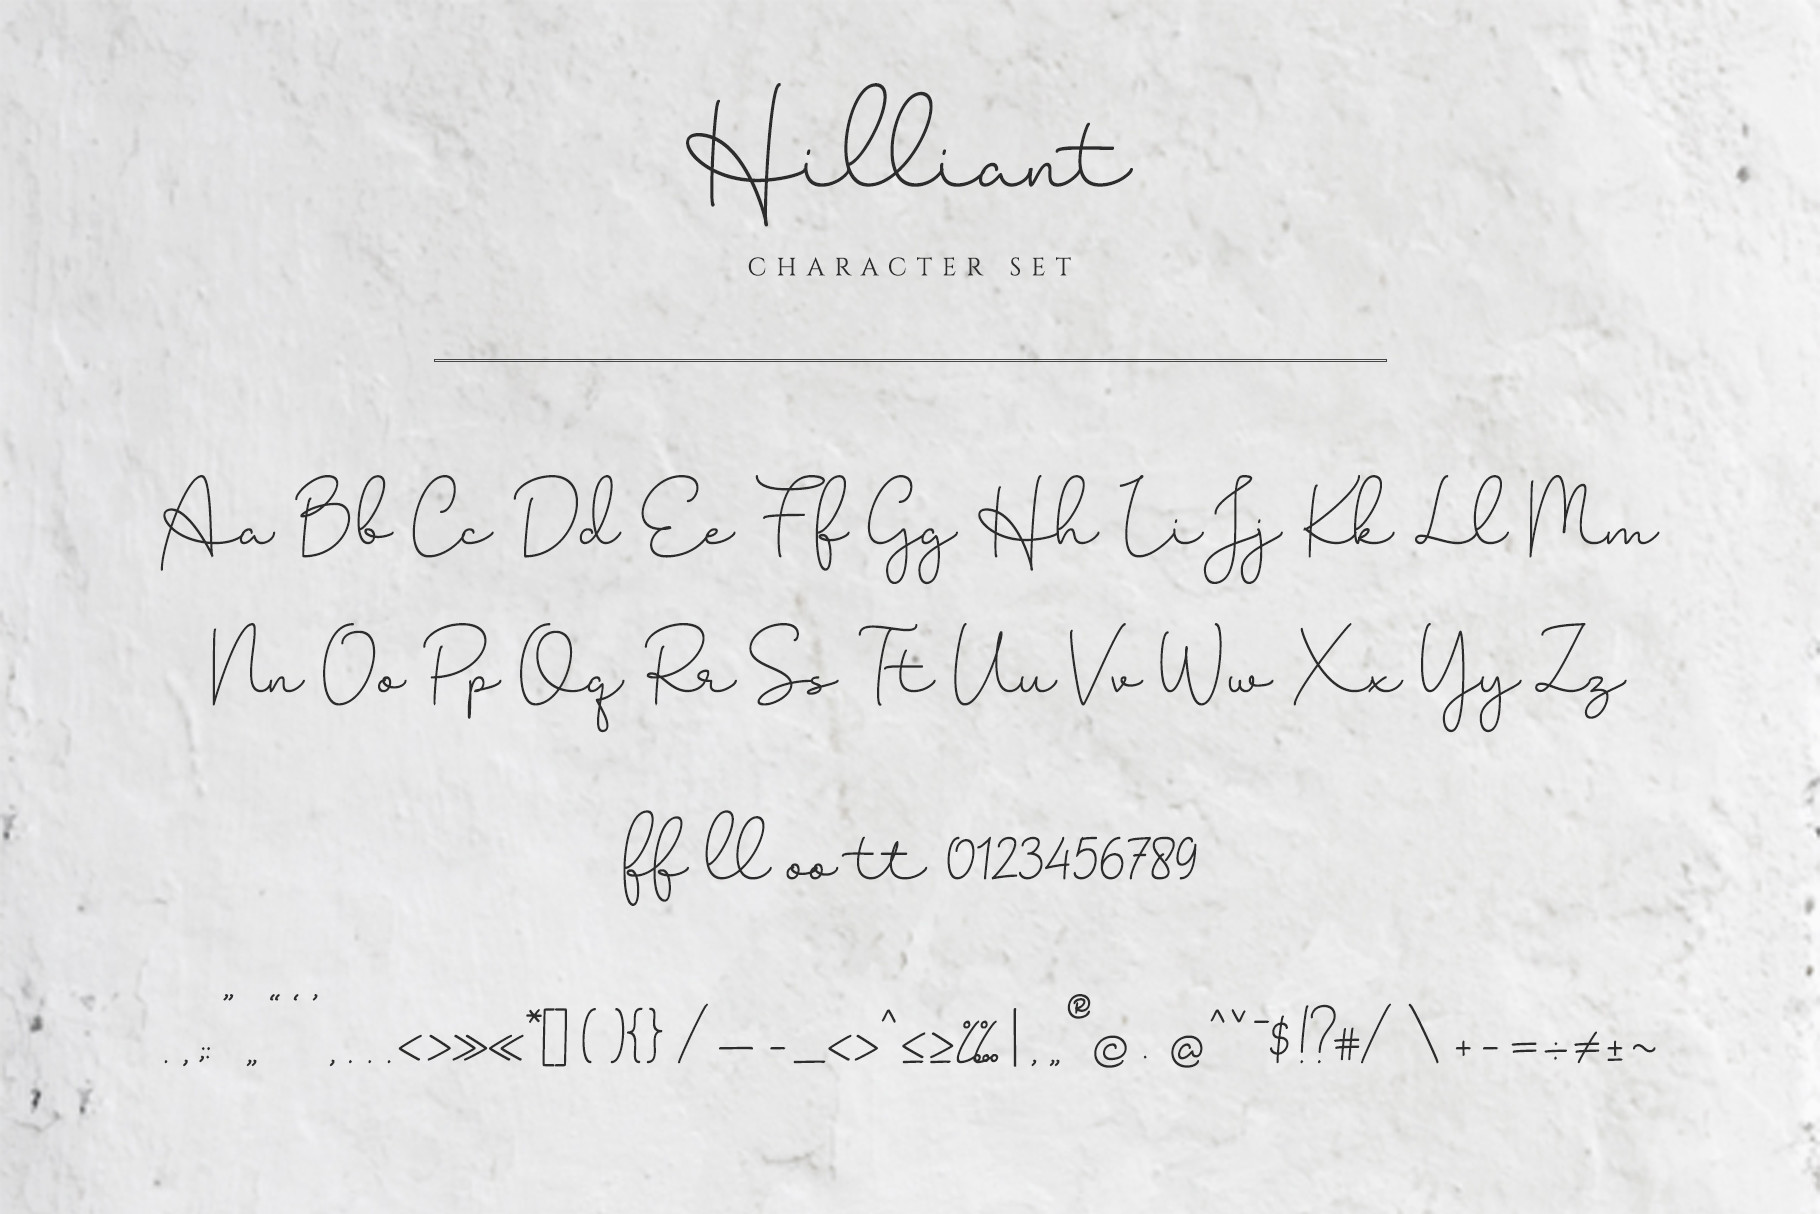 Hilliant
CHARACTER SET
Aa Bb Cc Dd Ee Ff Gg Hh Ii Jj Kk Ll Mm
Nn Oo Pp Qq Rr Ss Tt Uu Vv Ww Xx Yy Zz
ff ll oo tt 0123456789
. , ; : ” „ “ ‘ ’ , . . . < > ≫ ≪ * [ ] ( ) { } / — - _ < > ^ ≤ ≥ % ‰ | , „ ® © . @ ^ ˇ ¯ $ ! ? # / \ + − = ÷ ≠ ± ~